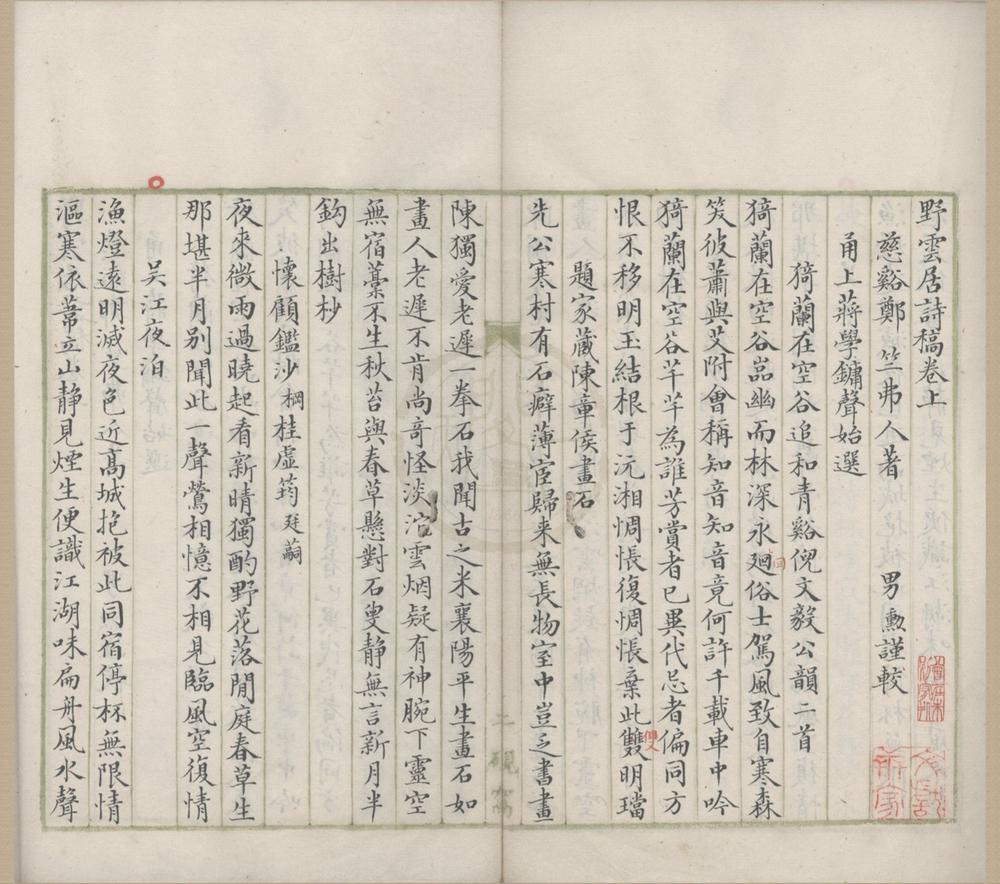 野雲居詩稿卷上
慈谿鄭竺弗人著 男勳謹較
甬上蔣學鏞聲始選
猗蘭在空谷追和青谿倪文毅公韻二首
猗蘭在空谷嵓幽而林深永廻俗士駕風致自寒森
笑彼蕭與艾附會稱知音知音竟何許千載車中吟
猗蘭在空谷芊芊為誰芳賞者已異代忌者偏同方
恨不移明玉結根于沅湘惆悵復惆悵棄此雙明璫
題家藏陳章侯畫石
先公寒村有石癖薄宦歸来無長物室中豈乏書畫
陳獨愛老遲一拳石我聞古之米襄陽平生畫石如
畫人老遲不肯尚奇怪淡沱雲烟疑有神腕下靈空
無宿藁不生秋苔與春草懸對石叟静無言新月半
鈎出樹杪
懷顧鑑沙㭎桂虛筠廷䔲
夜来微雨過曉起看新晴獨酌野花落閒庭春草生
那堪半月别聞此一聲鶯相憶不相見臨風空復情
吴江夜泊
漁燈遠明滅夜色近髙城抱被此同宿停杯無限情
漚寒依葦立山静見煙生便識江湖味扁舟風水聲
二 硯